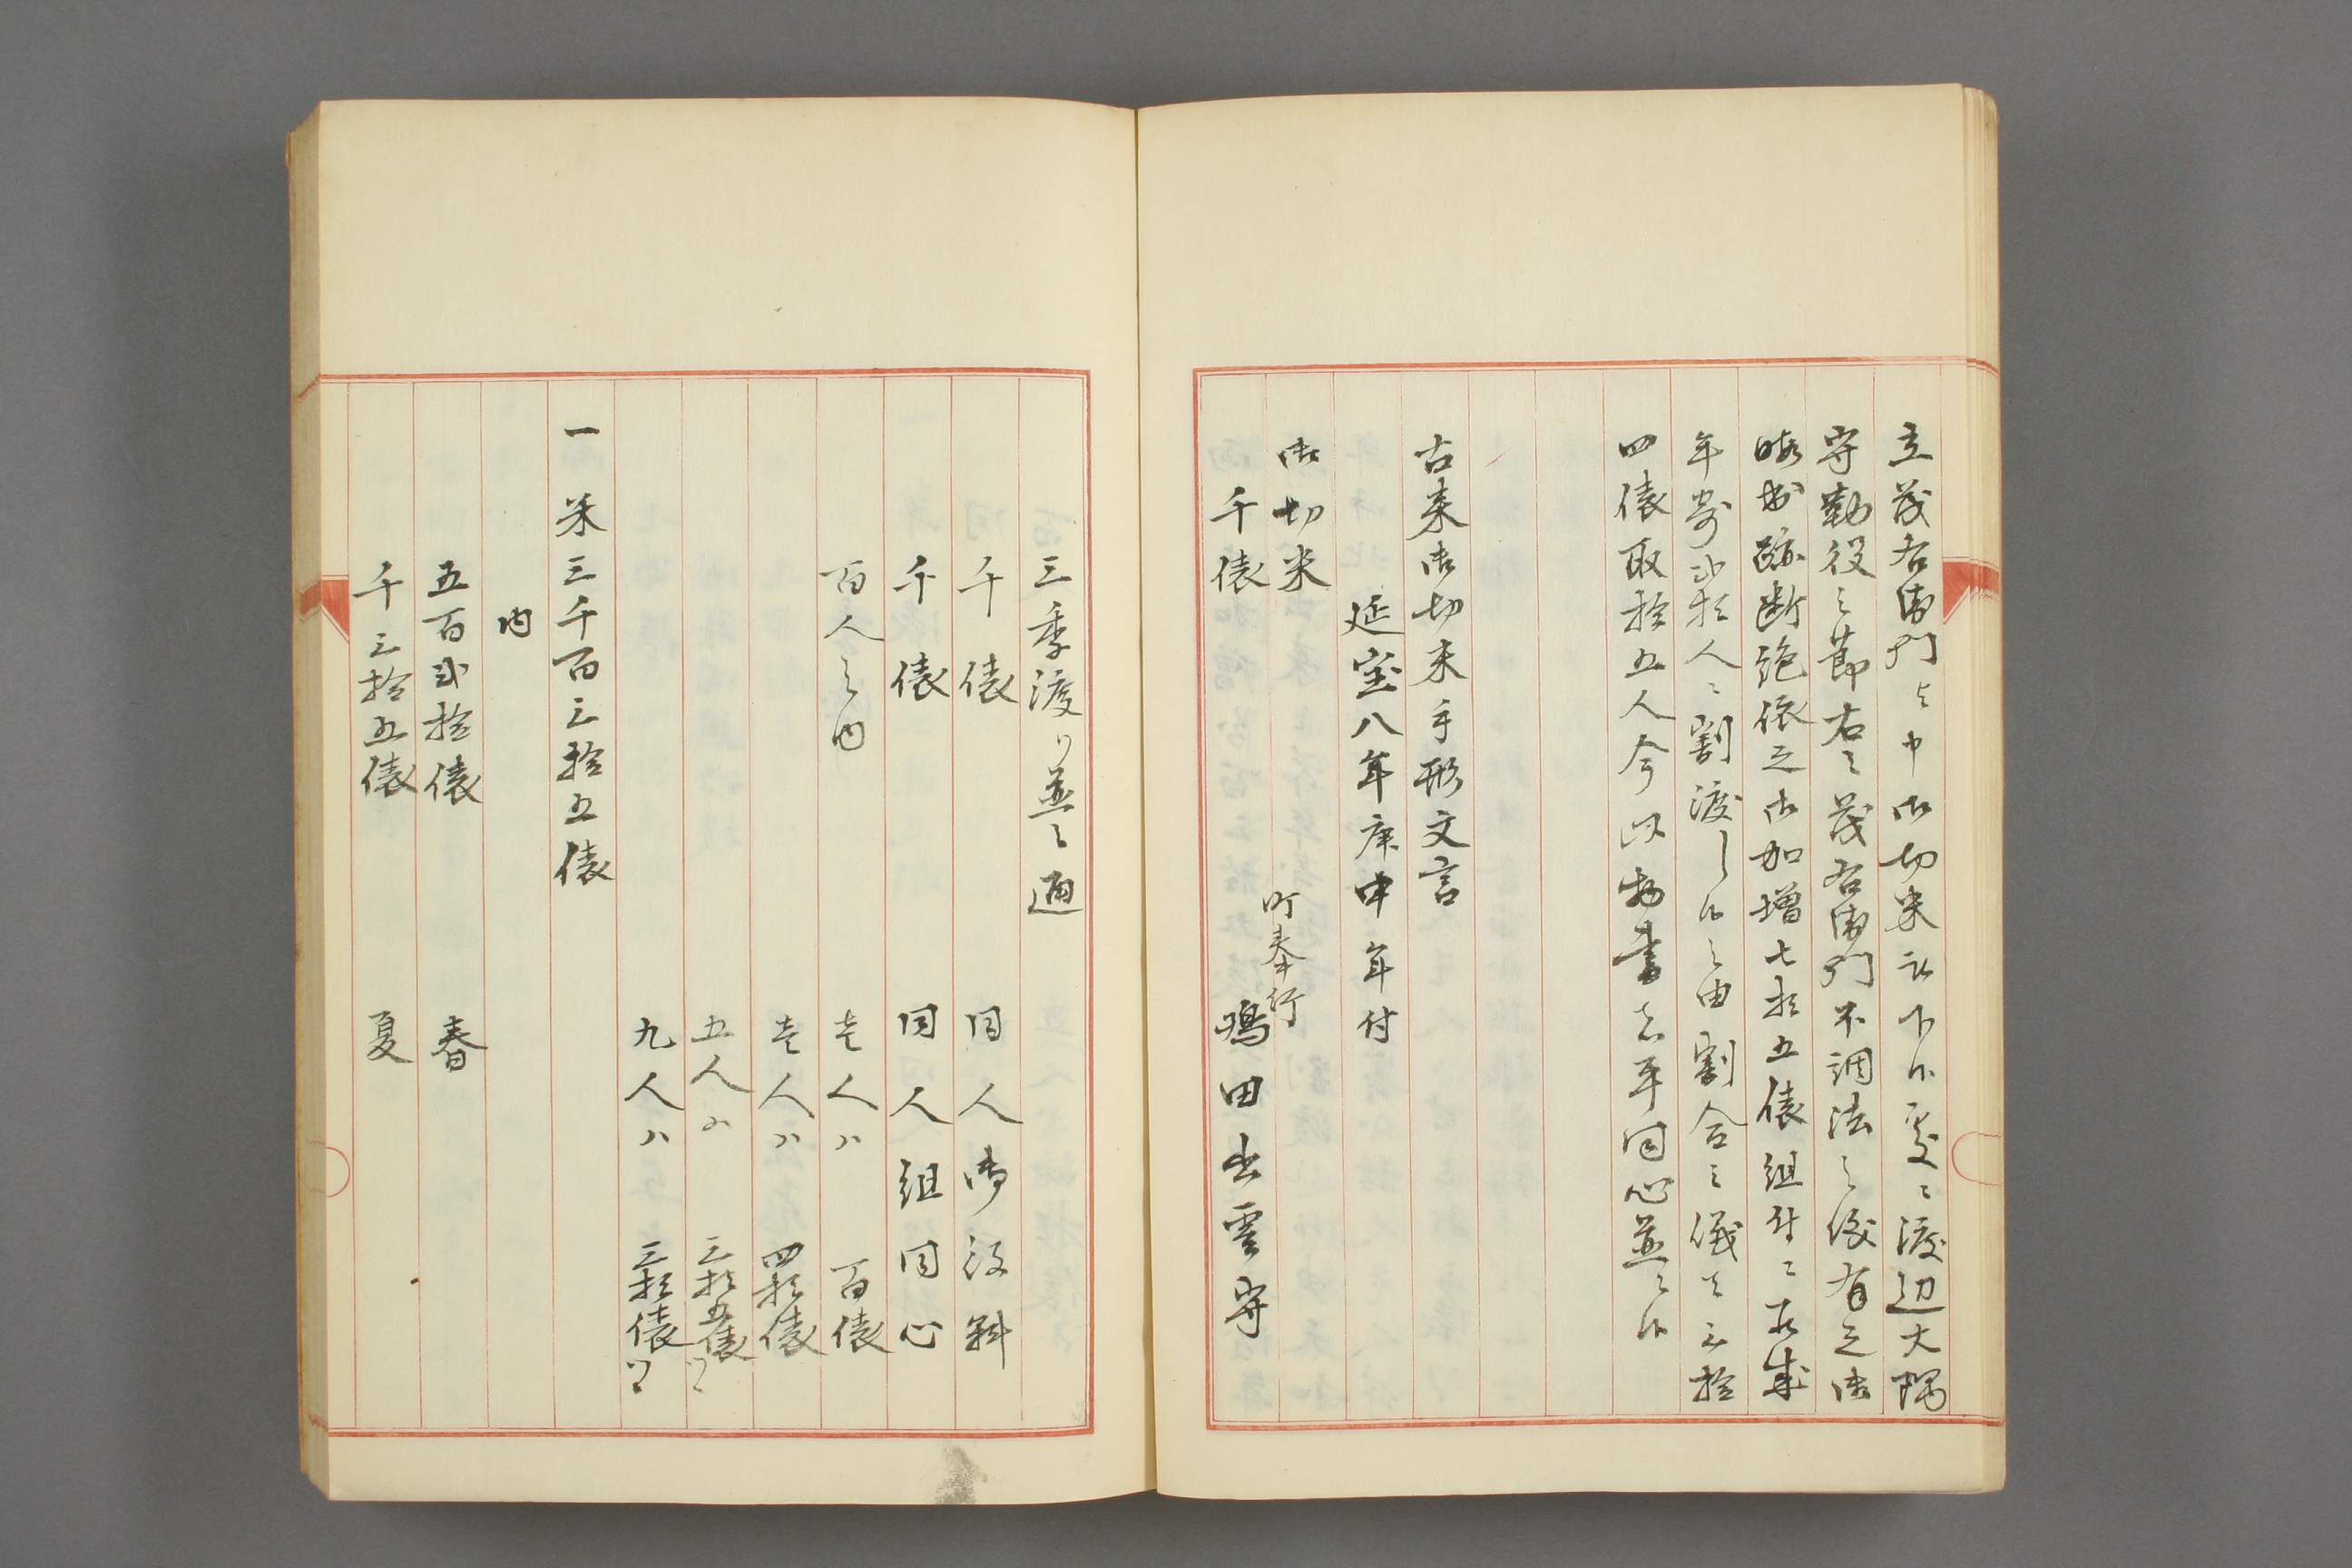 立茂右衛門と申御切米被下候処ニ渡辺大隅
守勤役之節右之茂右衛門不調法之儀有之御
暇出跡断絶依之御加増七拾五俵組付ニ相成
年寄弐拾人ニ割渡し候之由割合之儀者三拾
四俵取拾五人今以物書若年同心並之候
古来御切米手形文言
延宝八年庚申年付
御切米
町奉行
千俵 嶋田出雲守
三季渡り並之通
千俵 同人御役料
千俵 同人組同心
百人之内 壱人ハ 百俵
壱人ハ 四拾俵
五人ハ 三拾五俵ツヽ
九人ハ 三拾俵ツヽ
一 米三千百三拾五俵
内
五百弐拾俵 春
千三拾五俵 夏